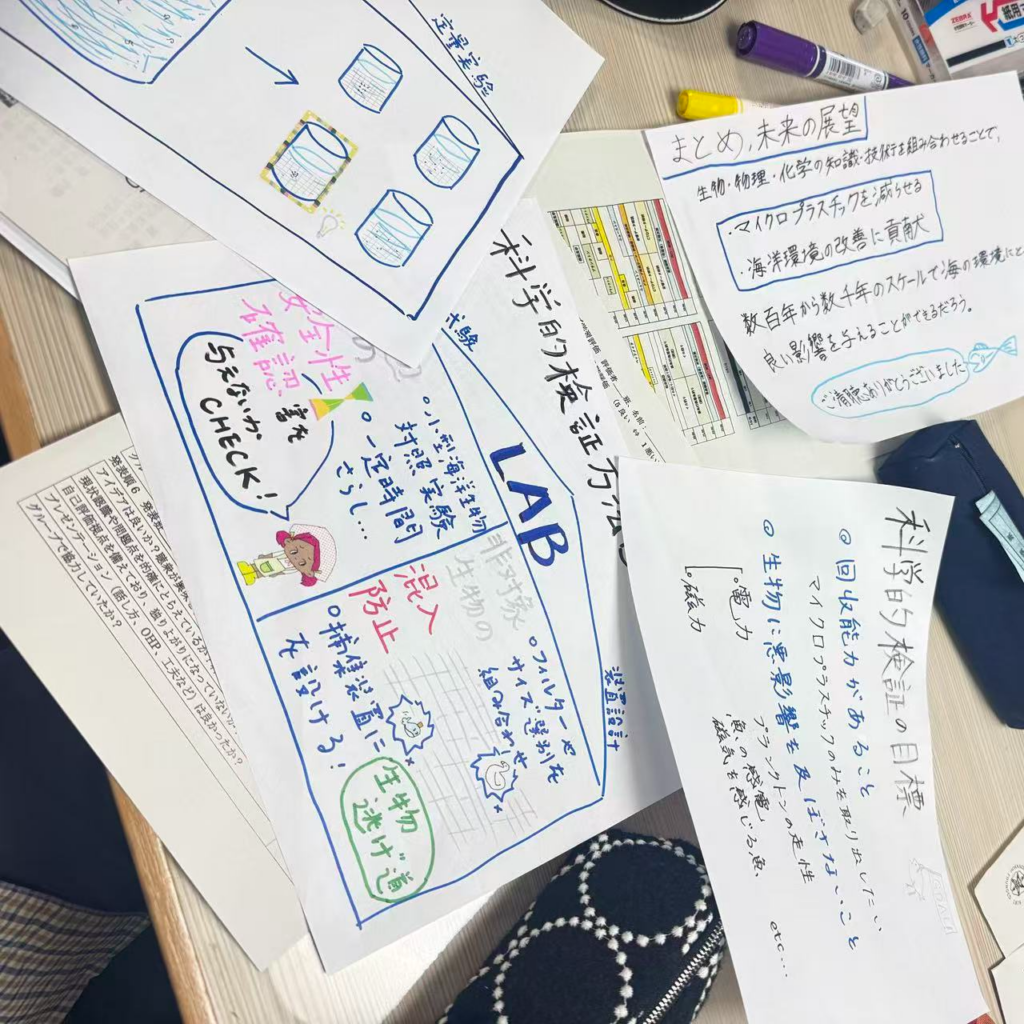 定量実験
まとめ,未来の展望
生物・物理・化学の知識・技術を組み合わせることで,
・マイクロプラスチックを減らせる
・海洋環境の改善に貢献
数百年から数千年のスケールで海の環境にと
良い影響を与えることができるだろう。
ご清聴ありがとうございました
科学的検証方法
実験
LAB
安全性
確認
の
害を
与えないか
CHECK!
○小型海洋生物
対照実験
○一定時間
さらし…
非対象
生物の
混入
防止
○フィルターや
サイズ選別を
組み合わせ
○捕集装置に
を設ける!
生物
逃げ道
装置設計
科学的検証の目標
◎回収能力があること
マイクロプラスチックのみを取り出したい
◎生物に悪影響を及ぼさないこと
プランクトンの走性
○電力
魚の感電
○磁力
磁気を感じる魚、
etc...
発表順6
アイデアは良いか?
現状認識や問題点を的確にとらえているか
自己評価視点を備えており、独りよがりになっていないか
プレゼンテーション(話し方、OHP、工夫など)は良かったか?
グループで協力していたか?
ZEBRA
紙用